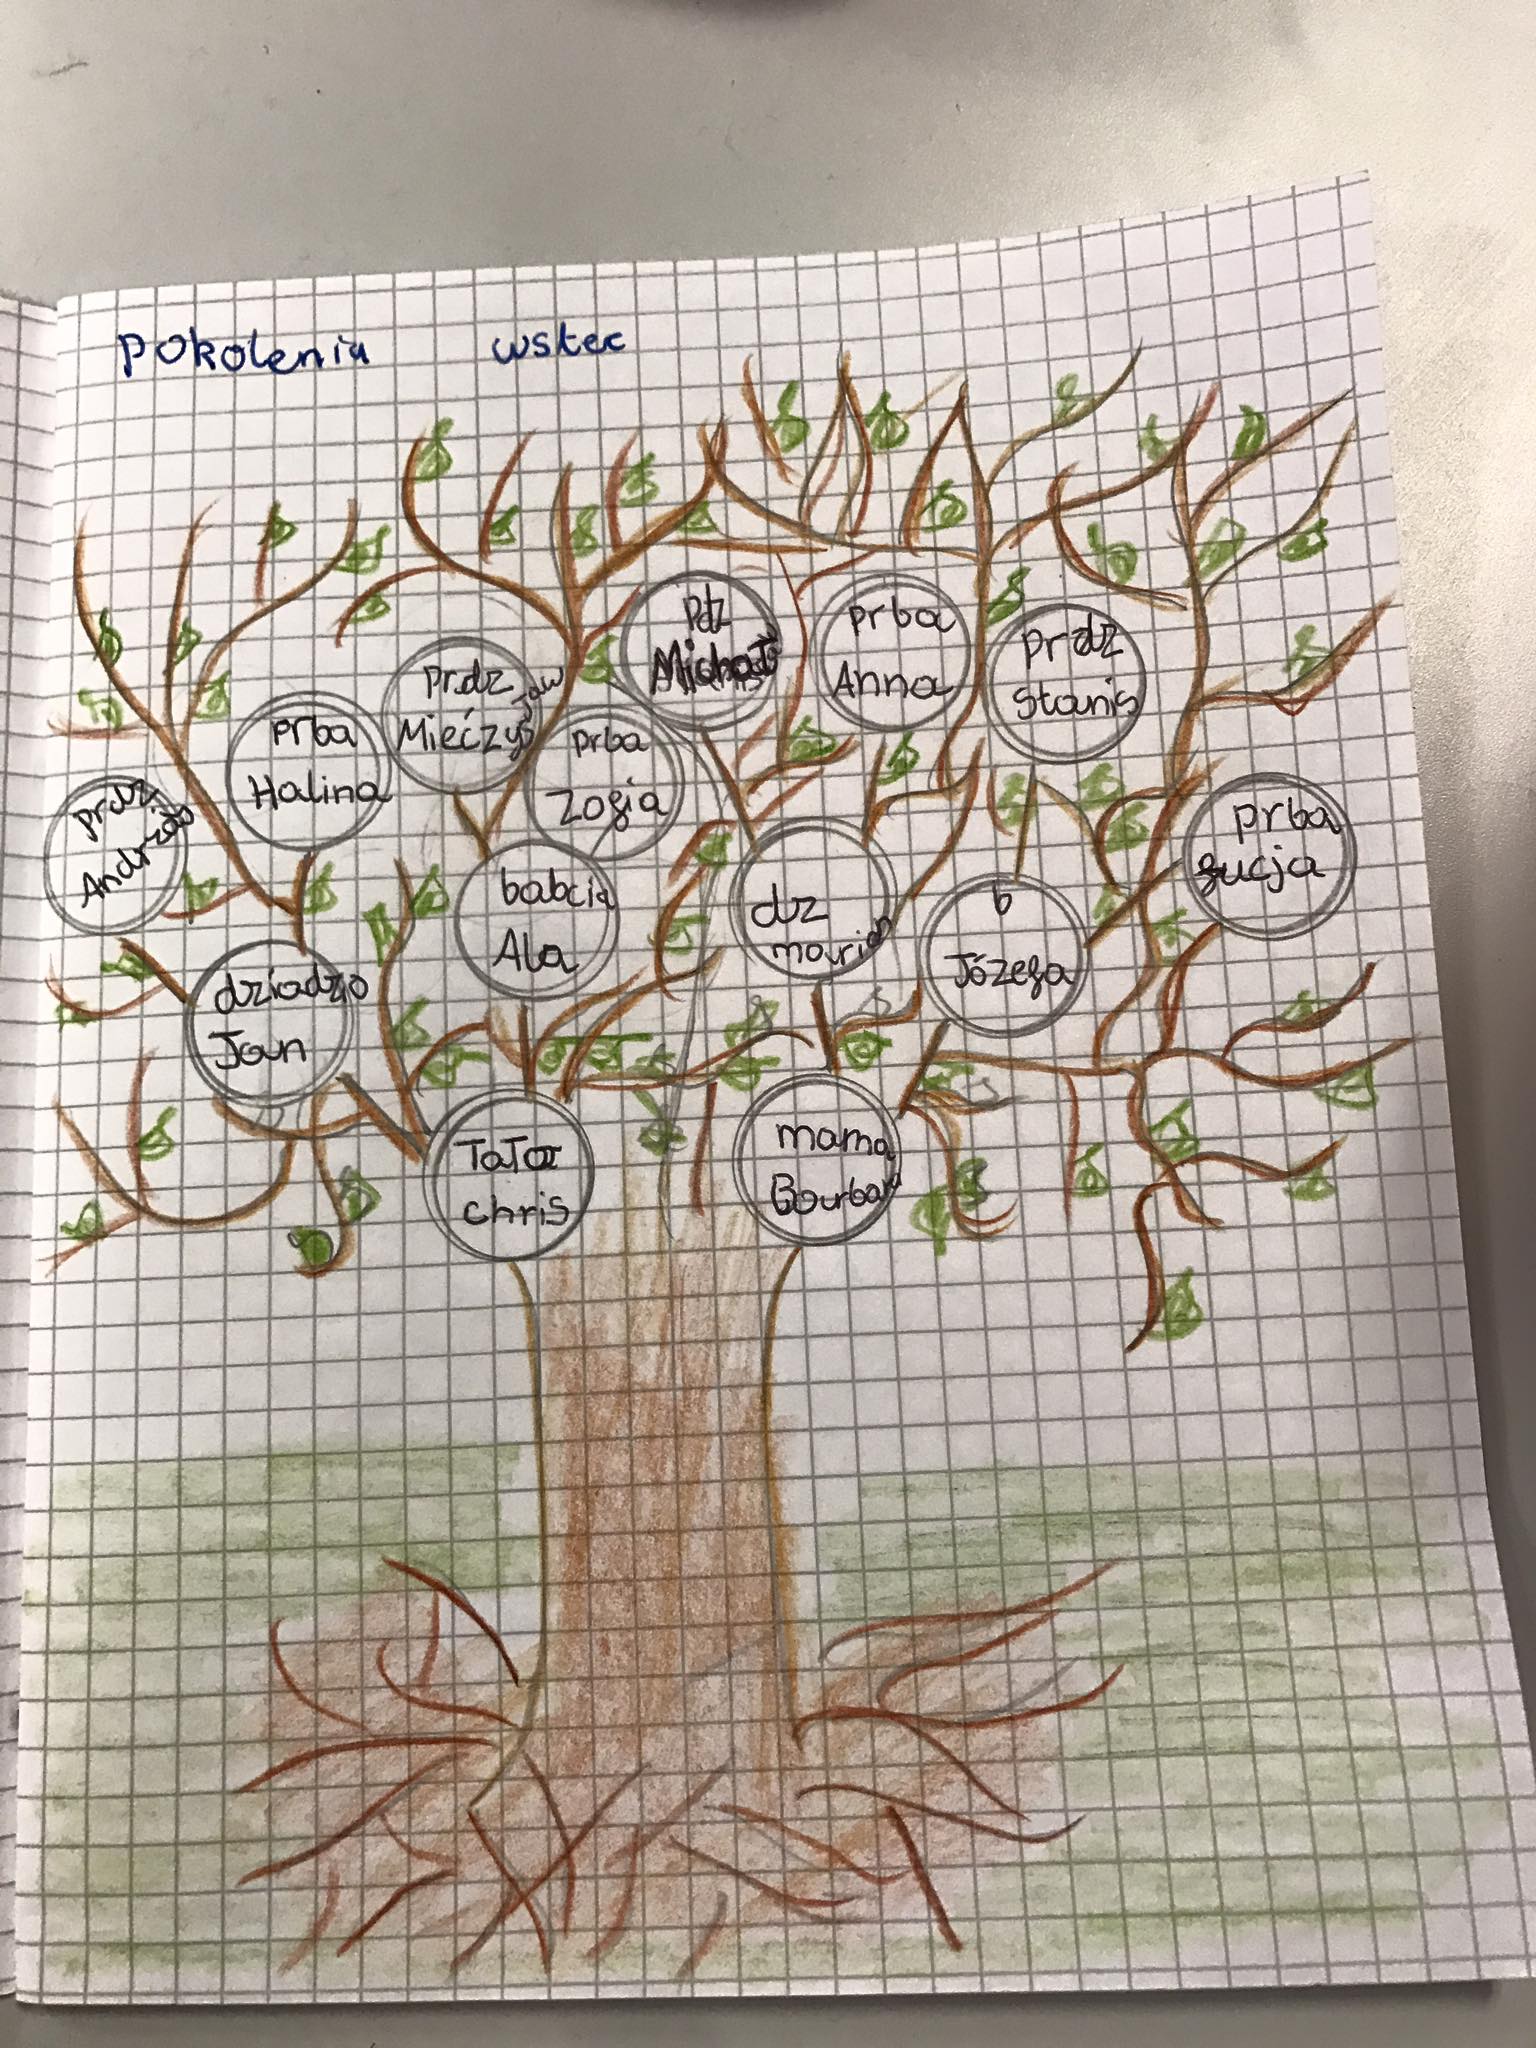 Pokolenia wstec
pdz
Michał
prba
Anna
prdz
Stanis
prdz
Miećzysław
prba
Halina
prba
Zofia
prdz
Andrzej
prba
Łucja
babcia
Ala
dz
marian
b
Józefa
dziadzio
Jan
Tata
chris
mama